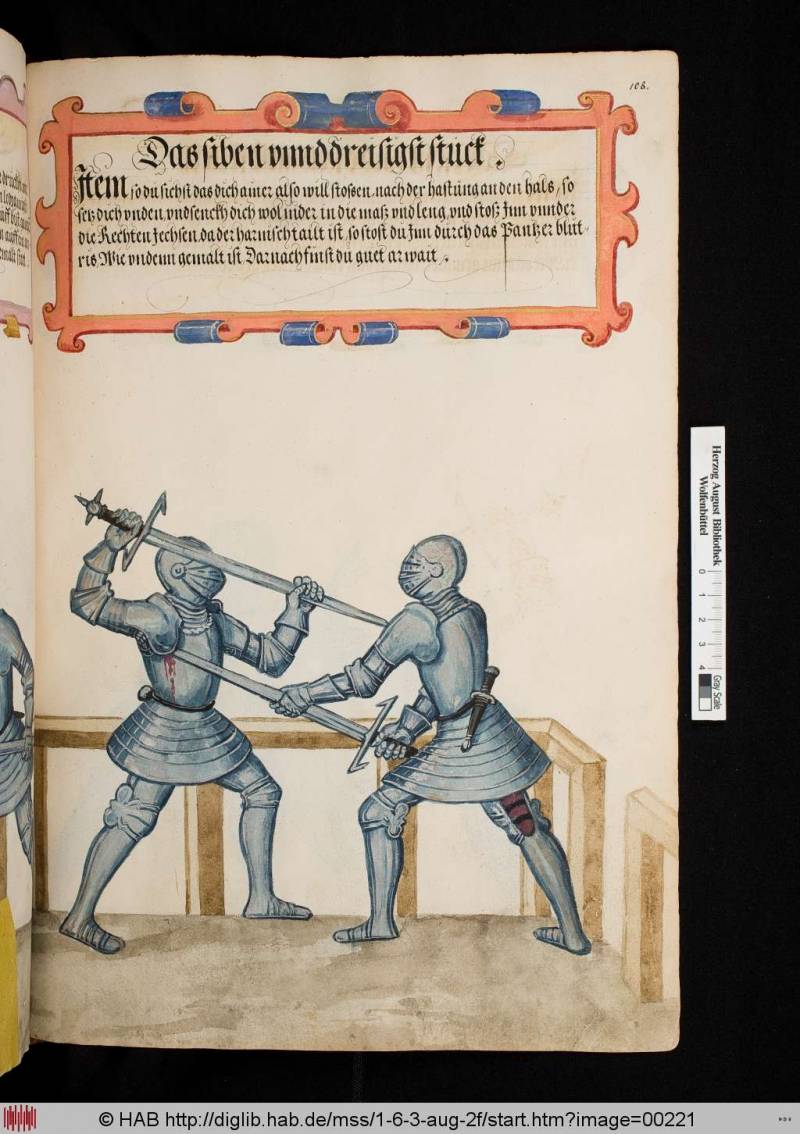 108.
Das siben vnnd dreisigst stuck.
Item so du sichst das dich ainer also will stossen, nach der hastung an den hals, so
setz dich vnden, vnd senckh dich wol nider in die maß vnd leng, vnd stoß Inn vnnder
die Rechten Jechsen, da der harnisch tailt ist, so stost du Inn durch das Pantzer blüt-
ris, Wie vndenn gemalt ist. Darnach finst du guet arwait.
Herzog August Bibliothek
Wolfenbüttel
0 1 2 3 4
Gray Scale
© HAB http://diglib.hab.de/mss/1-6-3-aug-2f/start.htm?image=00221